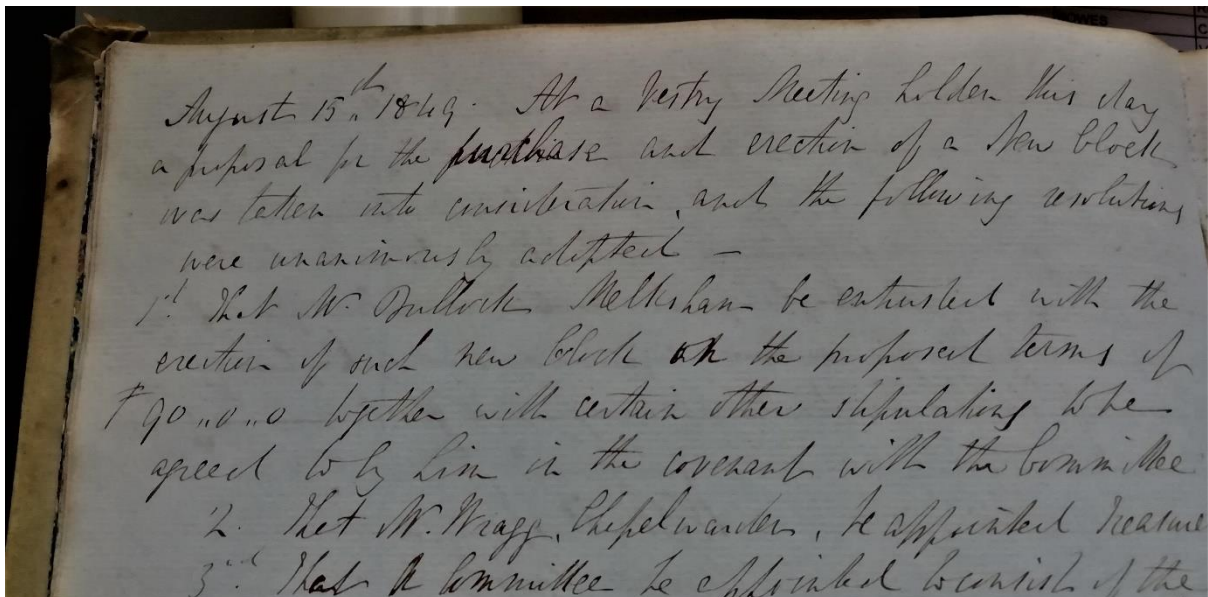 August 15th 1849. At a Vestry Meeting holden this day
a proposal for the purchase and erection of a New Clock
was taken into consideration, and the following resolutions
were unanimously adopted –
1st. That Mr Bullock Melksham be entrusted with the
erection of such new Clock on the proposed terms of
£ 90 ,, 0 ,, 0 together with certain other stipulations to be
agreed to by him in the covenant with the Committee
2. That Mr. Wragg, Chapelwarden, be appointed Treasure
3rd. That a Committee be appointed to consist of the